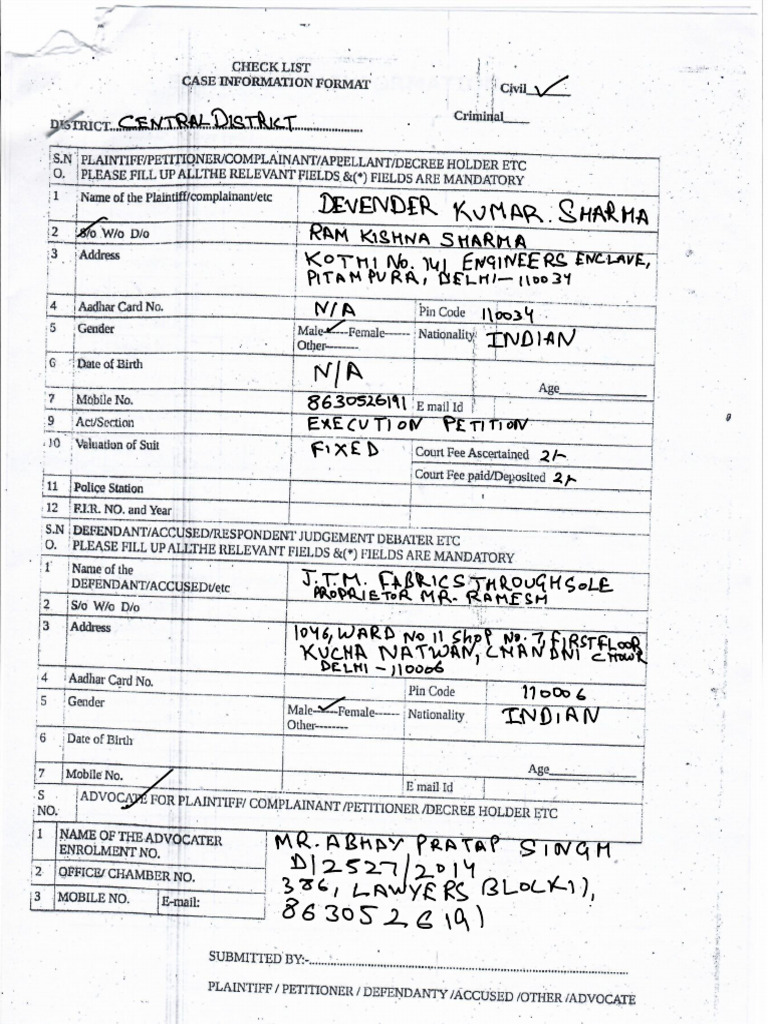 CHECK LIST
CASE INFORMATION FORMAT
Civil ✓
Criminal____
DISTRICT CENTRAL DISTRICT
S.N O. PLAINTIFF/PETITIONER/COMPLAINANT/APPELLANT/DECREE HOLDER ETC
PLEASE FILL UP ALLTHE RELEVANT FIELDS &(*) FIELDS ARE MANDATORY
1 Name of the Plaintiff/complainant/etc DEVENDER KUMAR. SHARMA
2 S/o W/o D/o RAM KISHNA SHARMA
3 Address KOTHI No. 141 ENGINEERS ENCLAVE,
PITAMPURA, DELHI-110034
4 Aadhar Card No. N/A Pin Code 110034
5 Gender Male-✓---Female------ Nationality INDIAN
Other---------
6 Date of Birth N/A
Age____________
7 Mobile No. 8630526191 E mail Id
9 Act/Section EXECUTION PETITION
10 Valuation of Suit FIXED Court Fee Ascertained 2/-
Court Fee paid/Deposited 2/-
11 Police Station
12 F.I.R. NO. and Year
S.N O. DEFENDANT/ACCUSED/RESPONDENT JUDGEMENT DEBATER ETC
PLEASE FILL UP ALLTHE RELEVANT FIELDS &(*) FIELDS ARE MANDATORY
1 Name of the J.T.M. FABRICS THROUGH SOLE
DEFENDANT/ACCUSEDt/etc PROPRIETOR MR. RAMESH
2 S/o W/o D/o
3 Address 1046, WARD No 11 Shop No. 7, FIRST FLOOR
KUCHA NATWAN, CHANDNI CHOWK
DELHI-110006
4 Aadhar Card No. Pin Code 110006
5 Gender Male-✓---Female------ Nationality INDIAN
Other---------
6 Date of Birth
Age____________
7 Mobile No. E mail Id
S NO. ADVOCATE FOR PLAINTIFF/ COMPLAINANT /PETITIONER /DECREE HOLDER ETC
1 NAME OF THE ADVOCATER MR. ABHAY PRATAP SINGH
ENROLMENT NO. D/2527/2014
2 OFFICE/ CHAMBER NO. 386, LAWYERS BLOCK
3 MOBILE NO. E-mail: 8630526191
SUBMITTED BY:-
PLAINTIFF / PETITIONER / DEFENDANTY /ACCUSED /OTHER /ADVOCATE